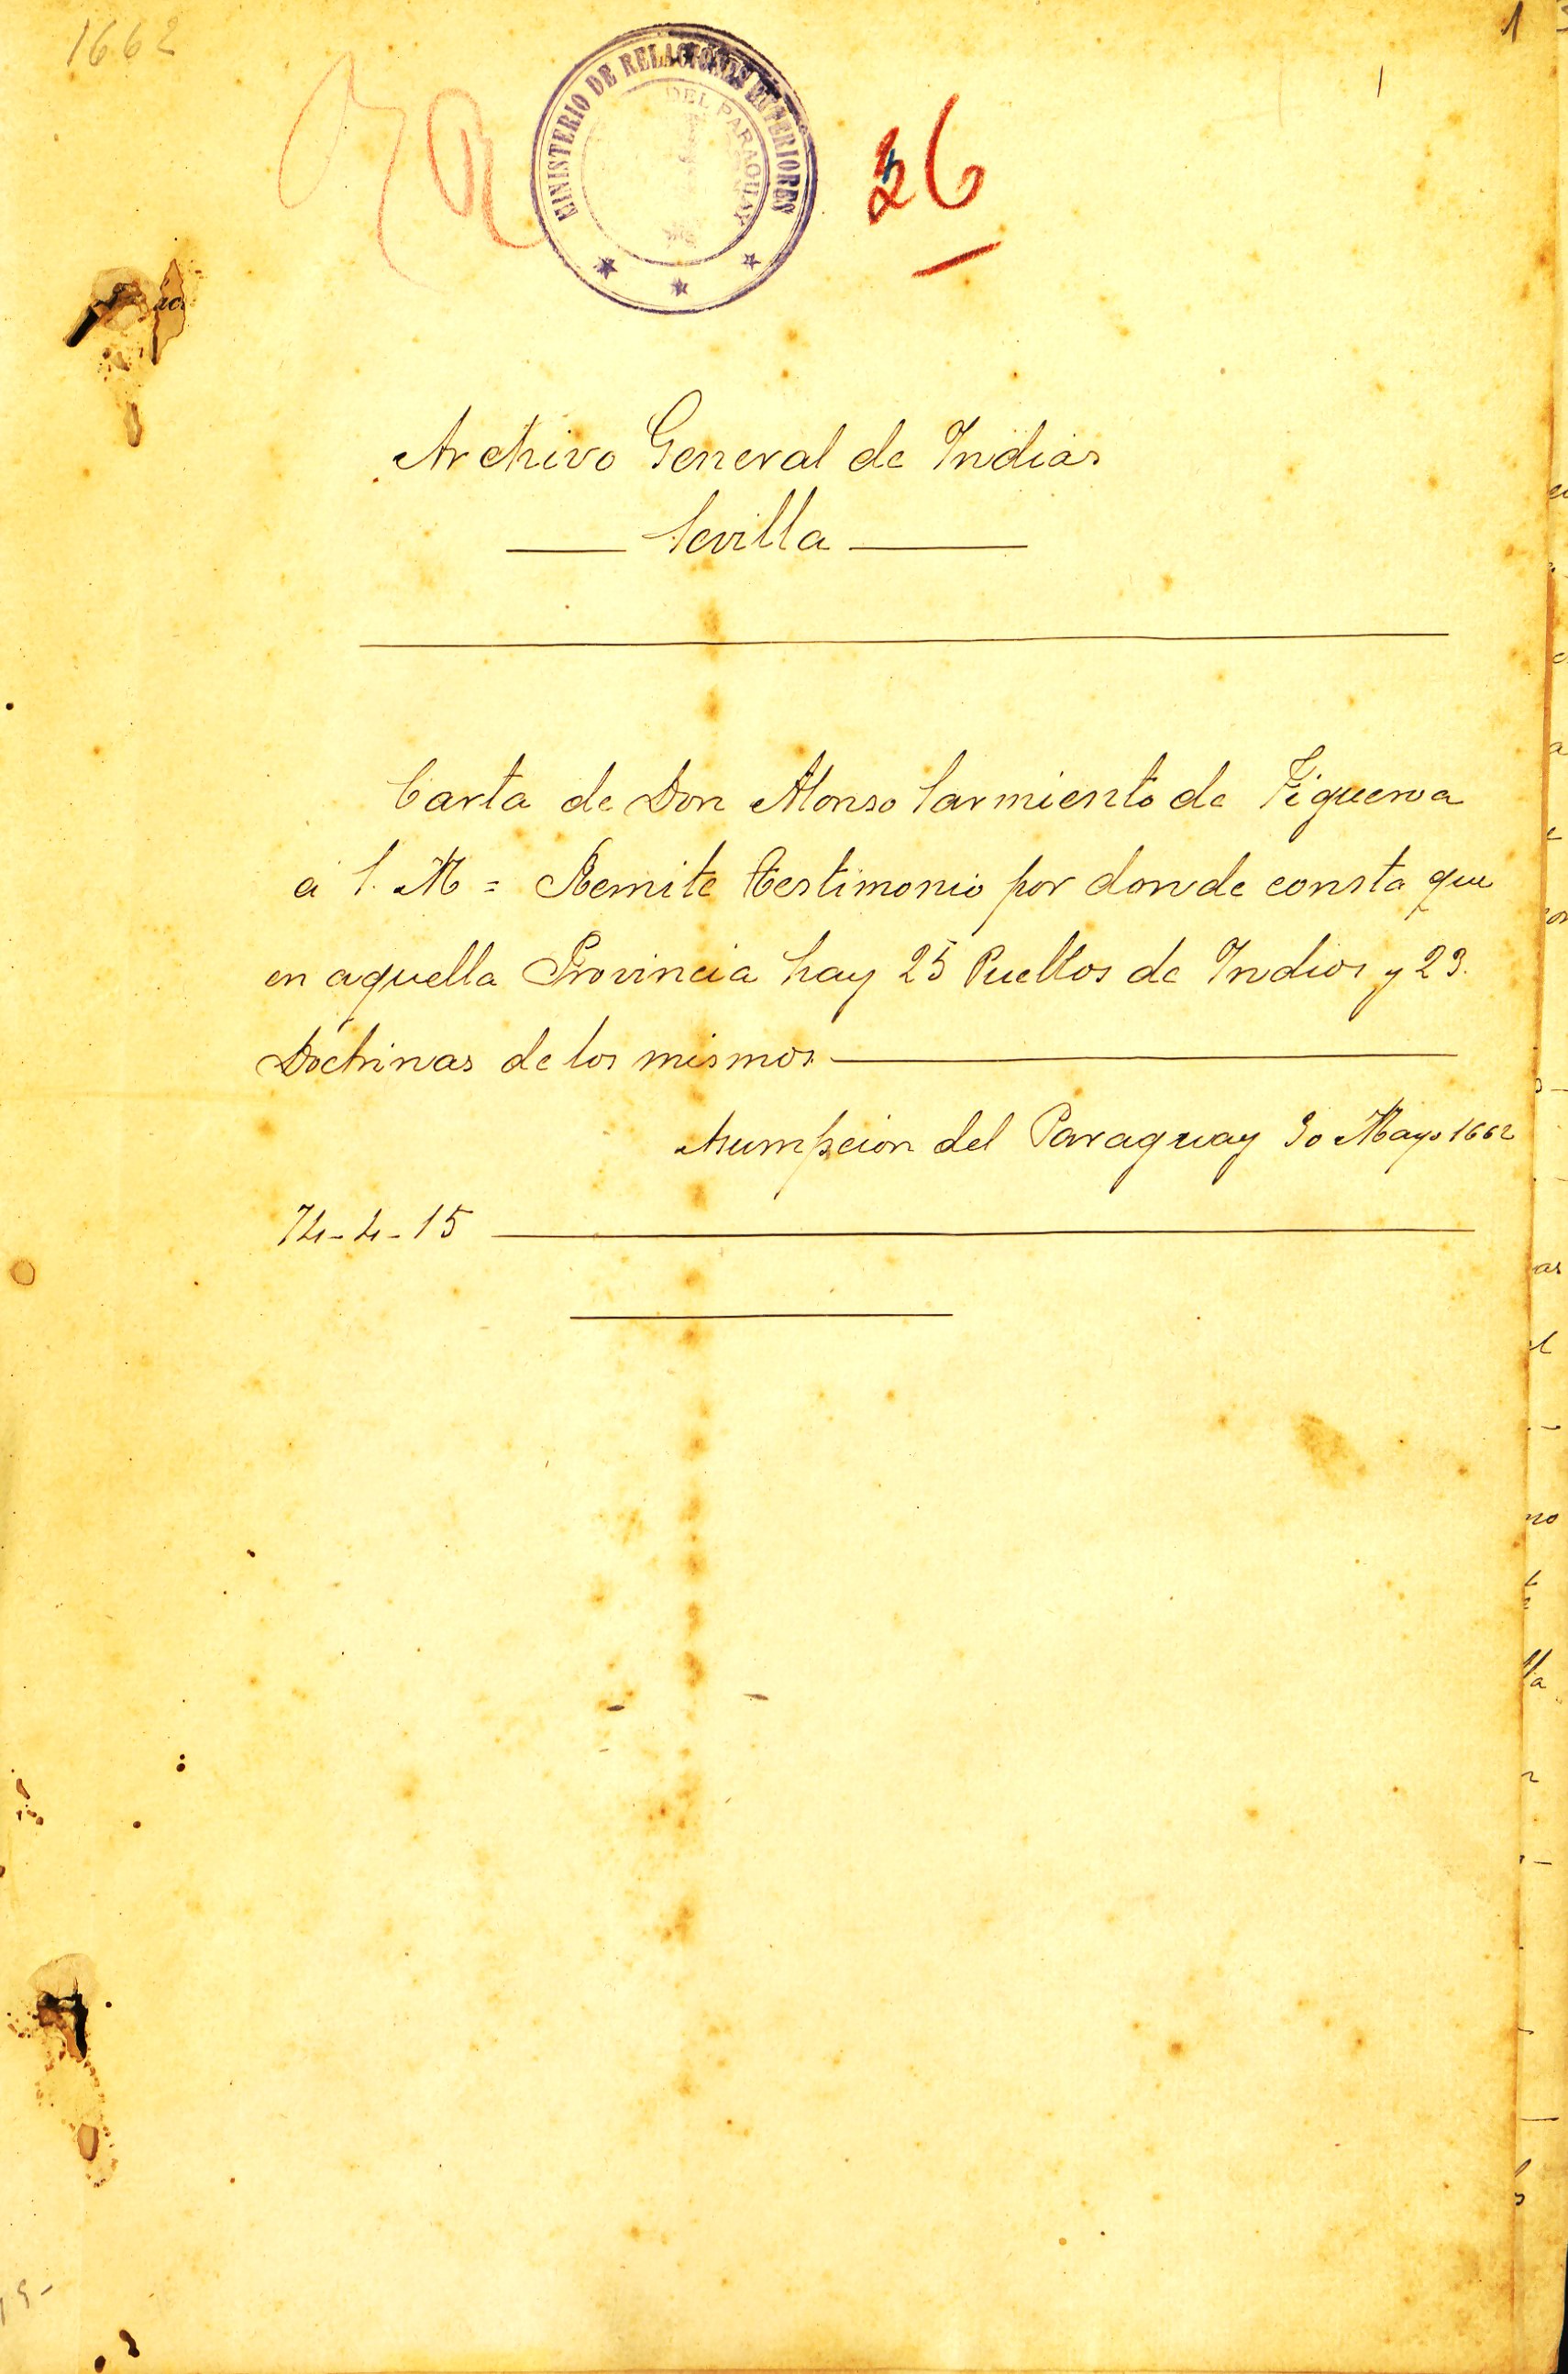 1662
1
MINISTERIO DE RELACIONES EXTERIORES
DEL PARAGUAY
26
Archivo General de Indias
Sevilla
Carta de Don Alonso Sarmiento de Figueroa
a S. M = Remite testimonio por donde consta que
en aquella Provincia hay 25 Pueblos de Indios y 23.
Doctrinas de los mismos
Asumpcion del Paraguay 30 Mayo 1662
74-4-15